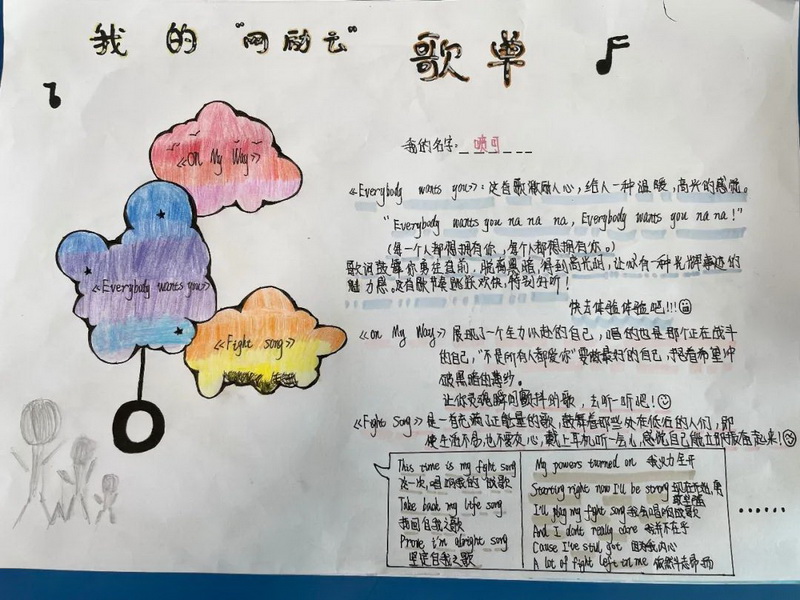 我 的 "网励云" 歌 单
《on My Way》
《Everybody wants you》
《Fight song》
我的名字:
《Everybody wants you》:这首歌激励人心,给人一种温暖,高兴的感觉。
"Everybody wants you na na na, Everybody wants you na na!"
(每一个人都很拥有你,每个人都很拥有你。)
歌词鼓舞你勇往直前,脱离黑暗,得到高光时,让你有一种光辉事迹的
魅力感。这首歌节奏跳跃欢快,特别好听!
快去体验体验吧!!!
《on My Way》展现了一个全力以赴的自己,唱的也是那个正在战斗
的自己,"不是所有人都爱你"要做最好的自己,抱着希望冲
破黑暗的薄纱。
让你灵魂瞬间颤抖的歌,去听一听吧!
《Fight Song》是一首充满了正能量的歌,鼓舞着那些处在低谷的人们,即
使生活不易,也不要灰心,戴上耳机听一会儿,感觉自己能立即振奋起来!
This time is my fght song
这一次,唱响我的战歌
Take back my life song
找回自我之歌
Prove i'm alright song
坚定自我之歌
My powers turned on 我火力全开
Starting right now I'll be strong 现在开始,
I'll play my fght song 我会唱响战歌
And I don't really care 我并不在乎
Cause I've still got 因为我内心
A lot of fight left in me 依然斗志昂扬
……